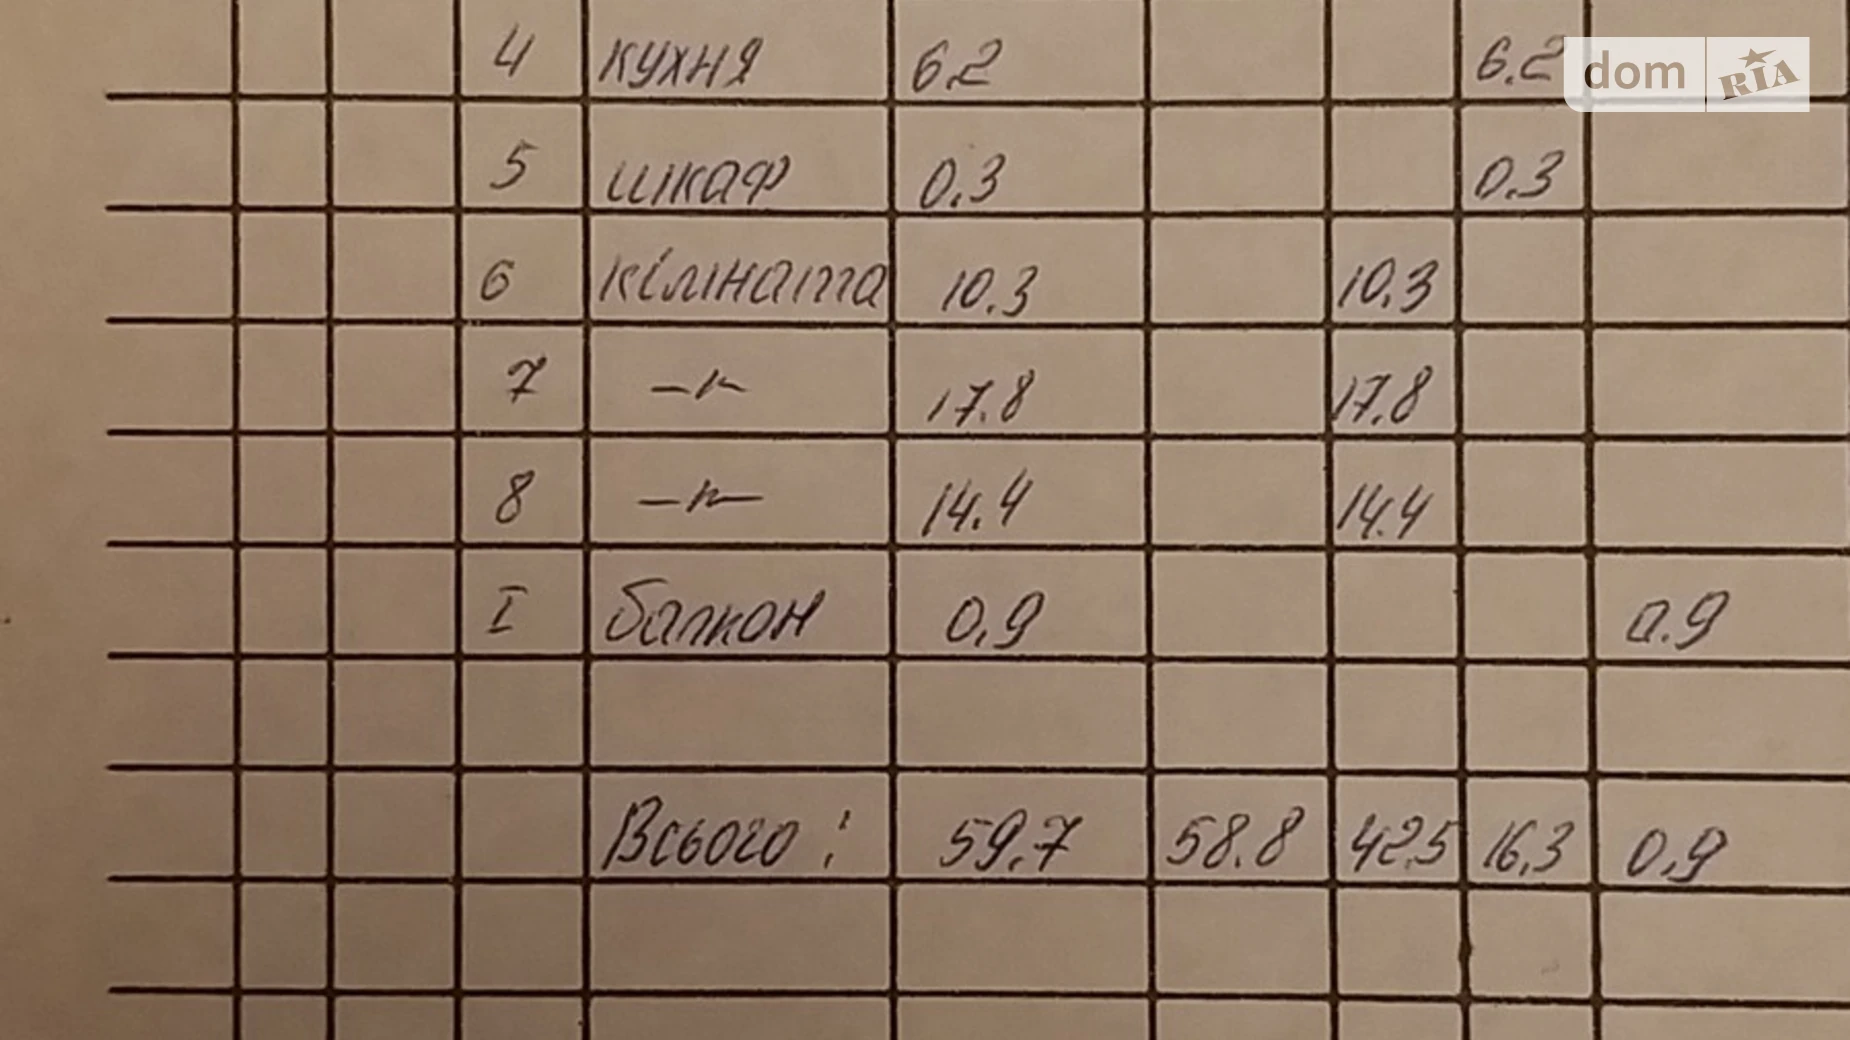 4 кухня 6.2 6.2
dom RIA
5 шкаф 0.3 0.3
6 кімната 10.3 10.3
7 –"– 17.8 17.8
8 –"– 14.4 14.4
I балкон 0,9 0.9
Всього: 59.7 58.8 42,5 16,3 0,9